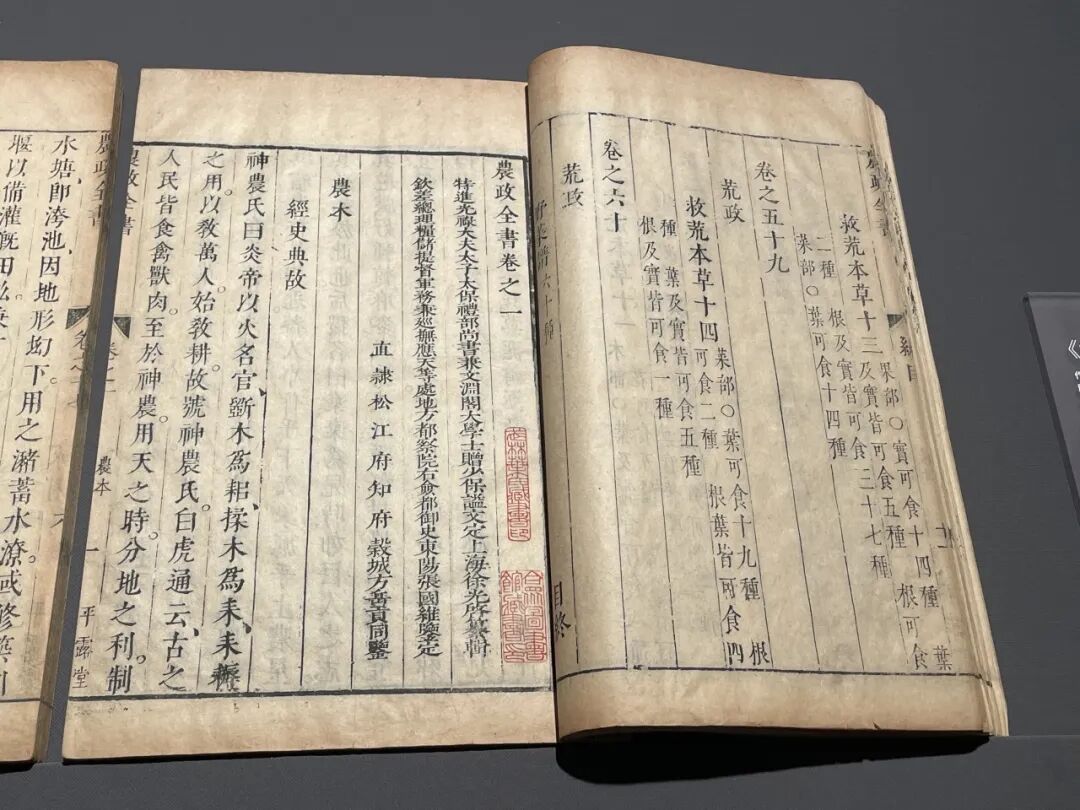 農政全書
總目
救荒本草十三
果部○實可食十四種 葉
及實皆可食五種 根可食
二種 根及實皆可食二
菜部○葉可食十四種
卷之五十九
荒政
救荒本草十四
菜部○葉可食十九種 根
可食二種 根葉皆可食四
種 葉及實皆可食五種
根及實皆可食一種
卷之六十
荒政
野菜譜六十種
目終
農政全書卷之一
特進光祿大夫太子太保禮部尚書兼文淵閣大學士贈少保謚文定上海徐光啓纂輯
欽差總理糧儲提督軍務兼巡撫應天等處地方都察院右僉都御史東陽張國維鑒定
直隸松江府知府穀城方岳貢同鑒
農本
經史典故
神農氏曰炎帝以火名官、斵木爲耜、揉木爲耒、耒耨
之用。以敎萬人。始敎耕。故號神農氏。白虎通云、古之
人民皆食禽獸肉。至於神農。用天之時。分地之利。制
農政全書
卷之一
農本
一
平露堂
農政全書
水塘、卽洿池因地形坳下用之瀦蓄水潦或修築
堰以備灌漑田